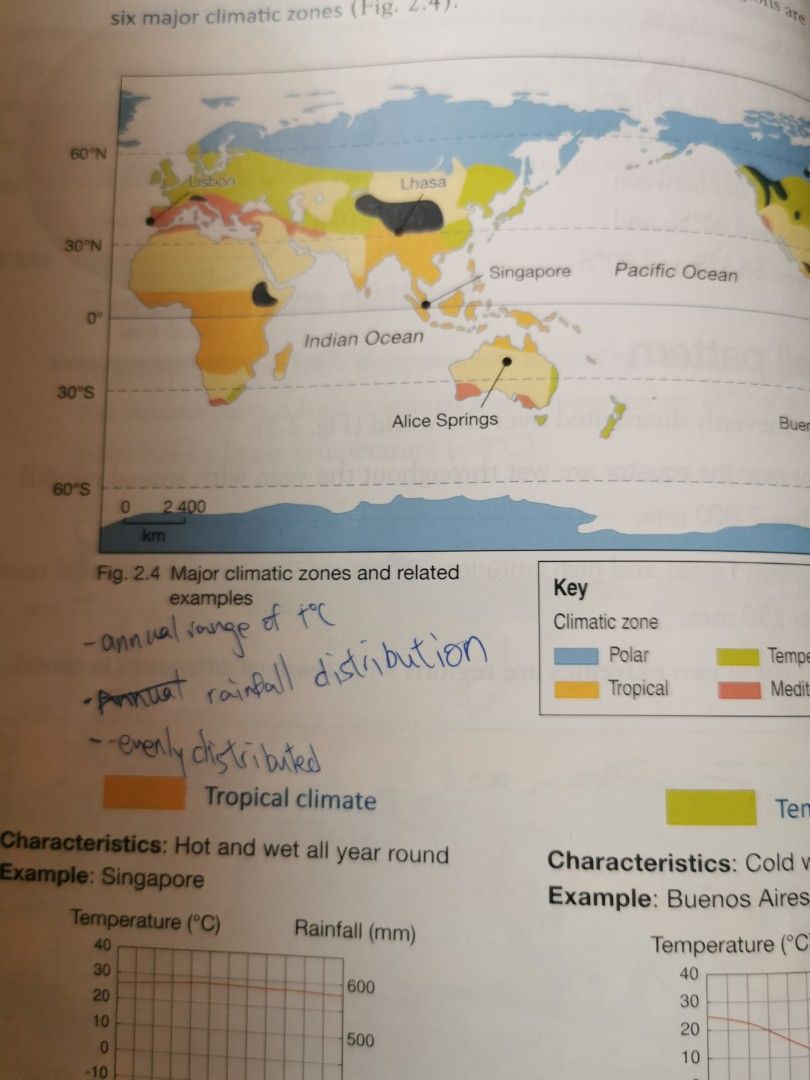 six major climatic zones (Fig. 2.4).
are
60°N
Lisbon
Lhasa
30°N
Singapore
Pacific Ocean
0°
Indian Ocean
30°S
Alice Springs
Buen
60°S
0 2 400
km
Fig. 2.4 Major climatic zones and related
examples
Key
Climatic zone
Polar
Tempe
Tropical
Medit
- annual range of t°C
- Annual rainfall distribution
- - evenly distributed
Tropical climate
Tem
Characteristics: Hot and wet all year round
Example: Singapore
Characteristics: Cold w
Example: Buenos Aires
Temperature (°C)
Rainfall (mm)
40
30
20
10
0
-10
600
500
Temperature (°C
40
30
20
10